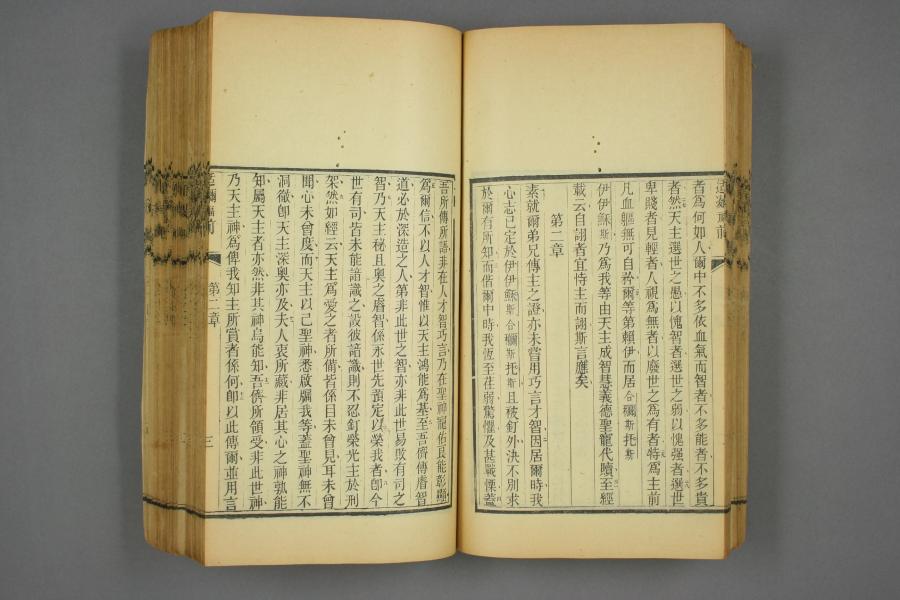 者爲何如人爾中不多依血氣而智者不多能者不多貴
者然天主選世之愚以愧智者選世之弱以愧强者選世
卑賤者見輕者人視爲無者以廢世之爲有者特爲主前
凡血軀無可自矜爾等第賴伊而居合
伊伊穌斯乃爲我等由天主成智慧義德聖寵代贖至經
載云自詡者宜恃主而詡斯言應矣
第二章
素就爾弟兄傳主之證亦未嘗用巧言才智因居爾時我
心志已定於伊伊穌斯合 且被釘外決不別求
於爾有所知而偕爾中時我恆至荏弱驚懼及甚戰慄蓋
吾所傳所語非在人才智巧言乃在聖神寵佑良能彰顯
爲爾信不以人才智惟以天主鴻能爲基至吾儕傳睿智
道必於深造之人第非此世之智亦非此世易敗有司之
智乃天主秘且奧之睿智係永世先預定以榮我者卽今
世有司皆未能諳識之設彼諳識則不忍釘榮光主於刑
架然如經云天主爲愛之者所備皆係目未曾見耳未曾
聞心未曾度而天主以己聖神悉啟牖我等蓋聖神無不
洞徹卽天主深奧亦及夫人衷所藏非居其心之神孰能
知屬天主者亦然非其神烏能知吾儕所領受非此世神
乃天主神爲俾我知主所賞者係何卽以此傳爾並用言
前 第二章 三